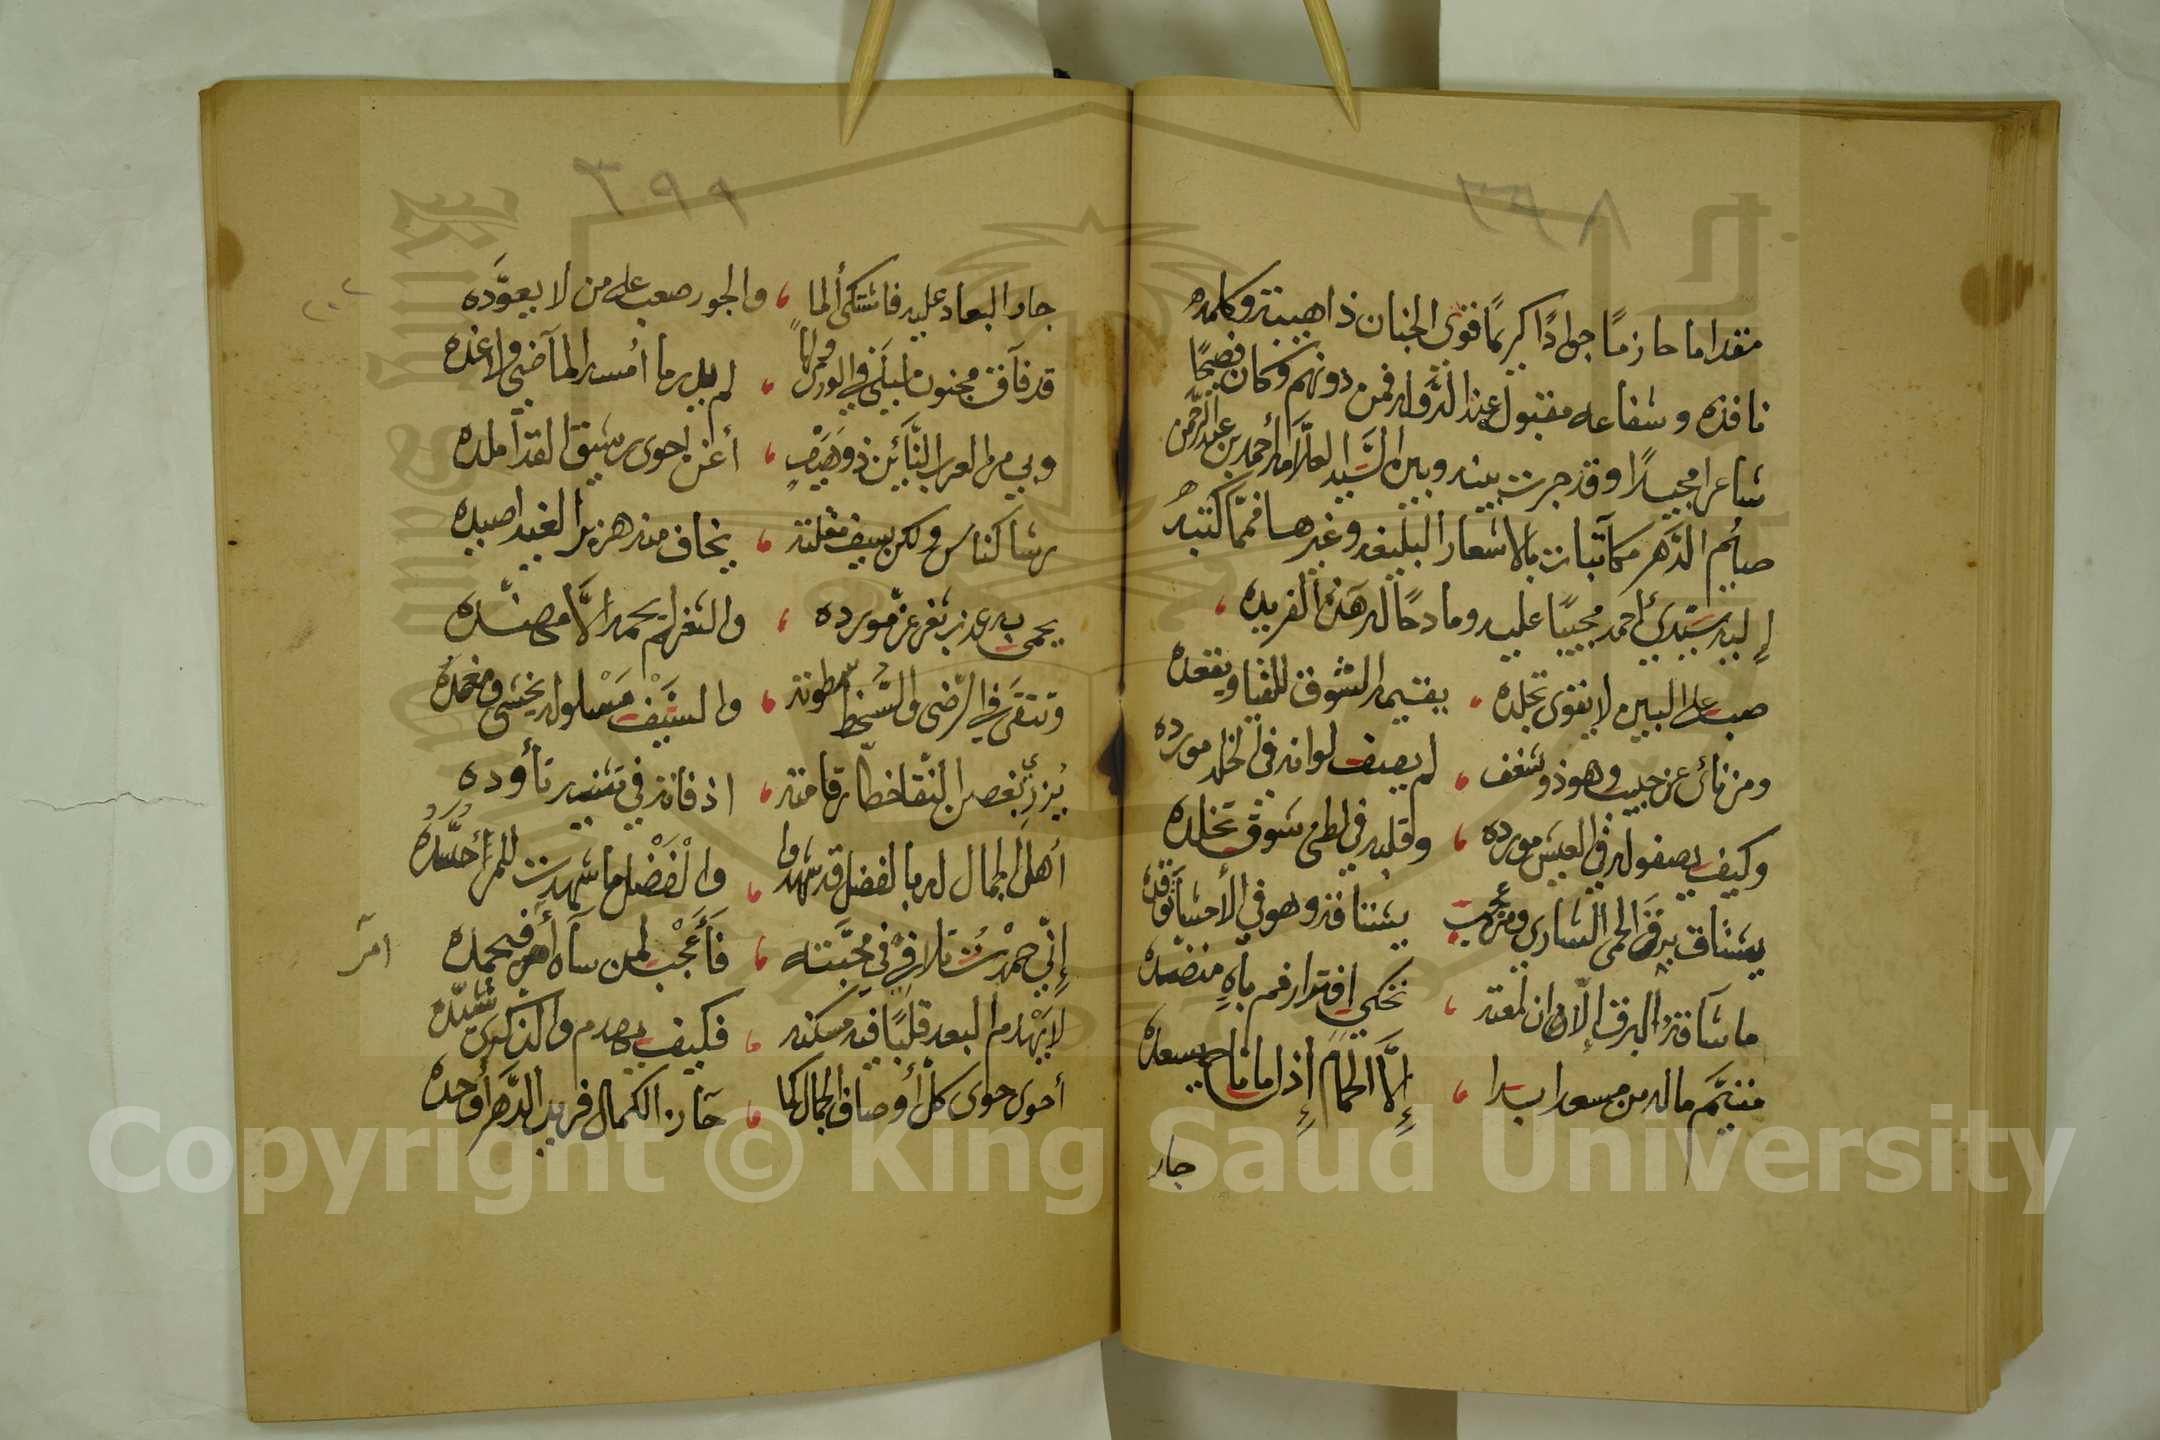 مقداما حازمًا جوادًا كريمًا قوى الجنان ذا هيبة وكلمه
نافذه وشفاعه مقبوله عند الدوله فمن دونهم وكان فصيحًا
شاعرا مجيدًا وقد جرت بينه وبين السَّيد العلَّامه أحمد بن عبد الرَّحمن
صايم الدَّهر مكاتبات بالاشعار البليغه وغيرها فممَّا كتبهُ
إليه سيّدي أحمد مجيبًا عليه ومادحًا له هَذه الفريده
صب على البين لا يقوى تجلده يقيمه الشوق للقيا ويقعده
ومن نائ عن حبيب وهو ذو شغف لم يصف لو انه في الخلد مورده
وكيف يصفو له في العيش مورده وقلبه في لظى شوق تخلده
يشتاق برق الحمى السَّاري ومن عجب يشتاقه وهو في الأحشا توقده
ما شاقهُ البرق إلّا ان لمعته تحكي افترار فم باهٍ منضده
متيَّم ماله من مسعد ابدا إلَّا الحمام إذا ما ناح يسعده
جار
جار البعاد عليه فاشتكى ألما والجور صعب على من لا يعوَّده
قد فآق مجنون ليلى في الورى ولهاً لم يدر ما أمسه الماضي ولا غده
وبي من العرب النَّائين ذو هَيَفٍ أغن احوى رشيق القد أملده
رشا كناس ولكن سيف مقلته يخاف منه هزبر الغيد اصيده
يحمى به عذب ثغر عزّ مورده والثغر لم يحمه إلَّا مهنّده
وتتقى في الرّضى والسَّخط سطوته والسَّيْف مَسْلوله يخشى ومغمدهُ
يُزري بغصن النّقا خطّار قامته اذ فاته في تثنيه تأوده
أهل الجمال له بالفضل قد شهدوا والْفَضْل ما شهدت للمرأ حسَّدهُ
إنّي حمدْتُ تلافي في محبَّته فأَعْجَب لمن سآه أمر فيحمده
لا يَهْدم البعد قلبًا فيه مسكنه فكيف يهدم والذكرى تشيّده
أحوى حوى كلّ أوصاف الجمال كما حاز الكمال فريد الدَّهر أوحده